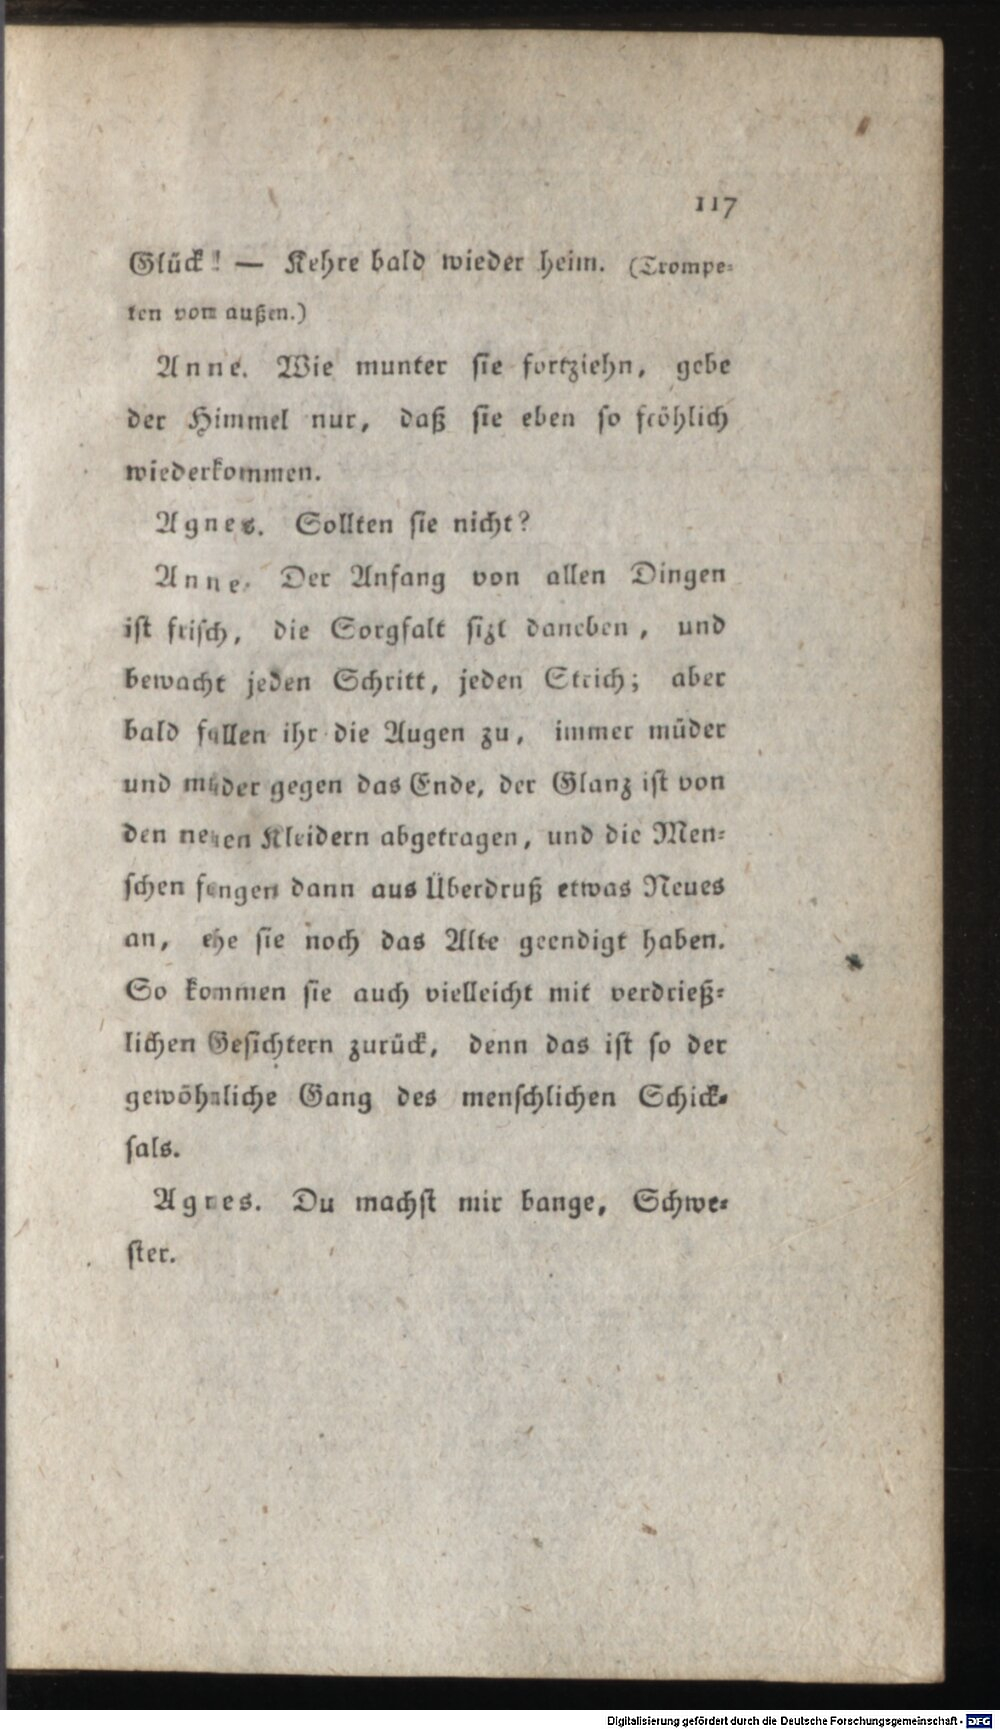 117
Glück! — Kehre bald wieder heim. (Trompe-
ten von außen.)
Anne. Wie munter sie fortziehn, gebe
der Himmel nur, daß sie eben so fröhlich
wiederkommen.
Agnes. Sollten sie nicht?
Anne. Der Anfang von allen Dingen
ist frisch, die Sorgfalt sizt daneben, und
bewacht jeden Schritt, jeden Strich; aber
bald fallen ihr die Augen zu, immer müder
und müder gegen das Ende, der Glanz ist von
den neuen Kleidern abgetragen, und die Men-
schen fangen dann aus Überdruß etwas Neues
an, ehe sie noch das Alte geendigt haben.
So kommen sie auch vielleicht mit verdrieß-
lichen Gesichtern zurück, denn das ist so der
gewöhnliche Gang des menschlichen Schick-
sals.
Agnes. Du machst mir bange, Schwe-
ster.
Digitalisierung gefördert durch die Deutsche Forschungsgemeinschaft - DFG